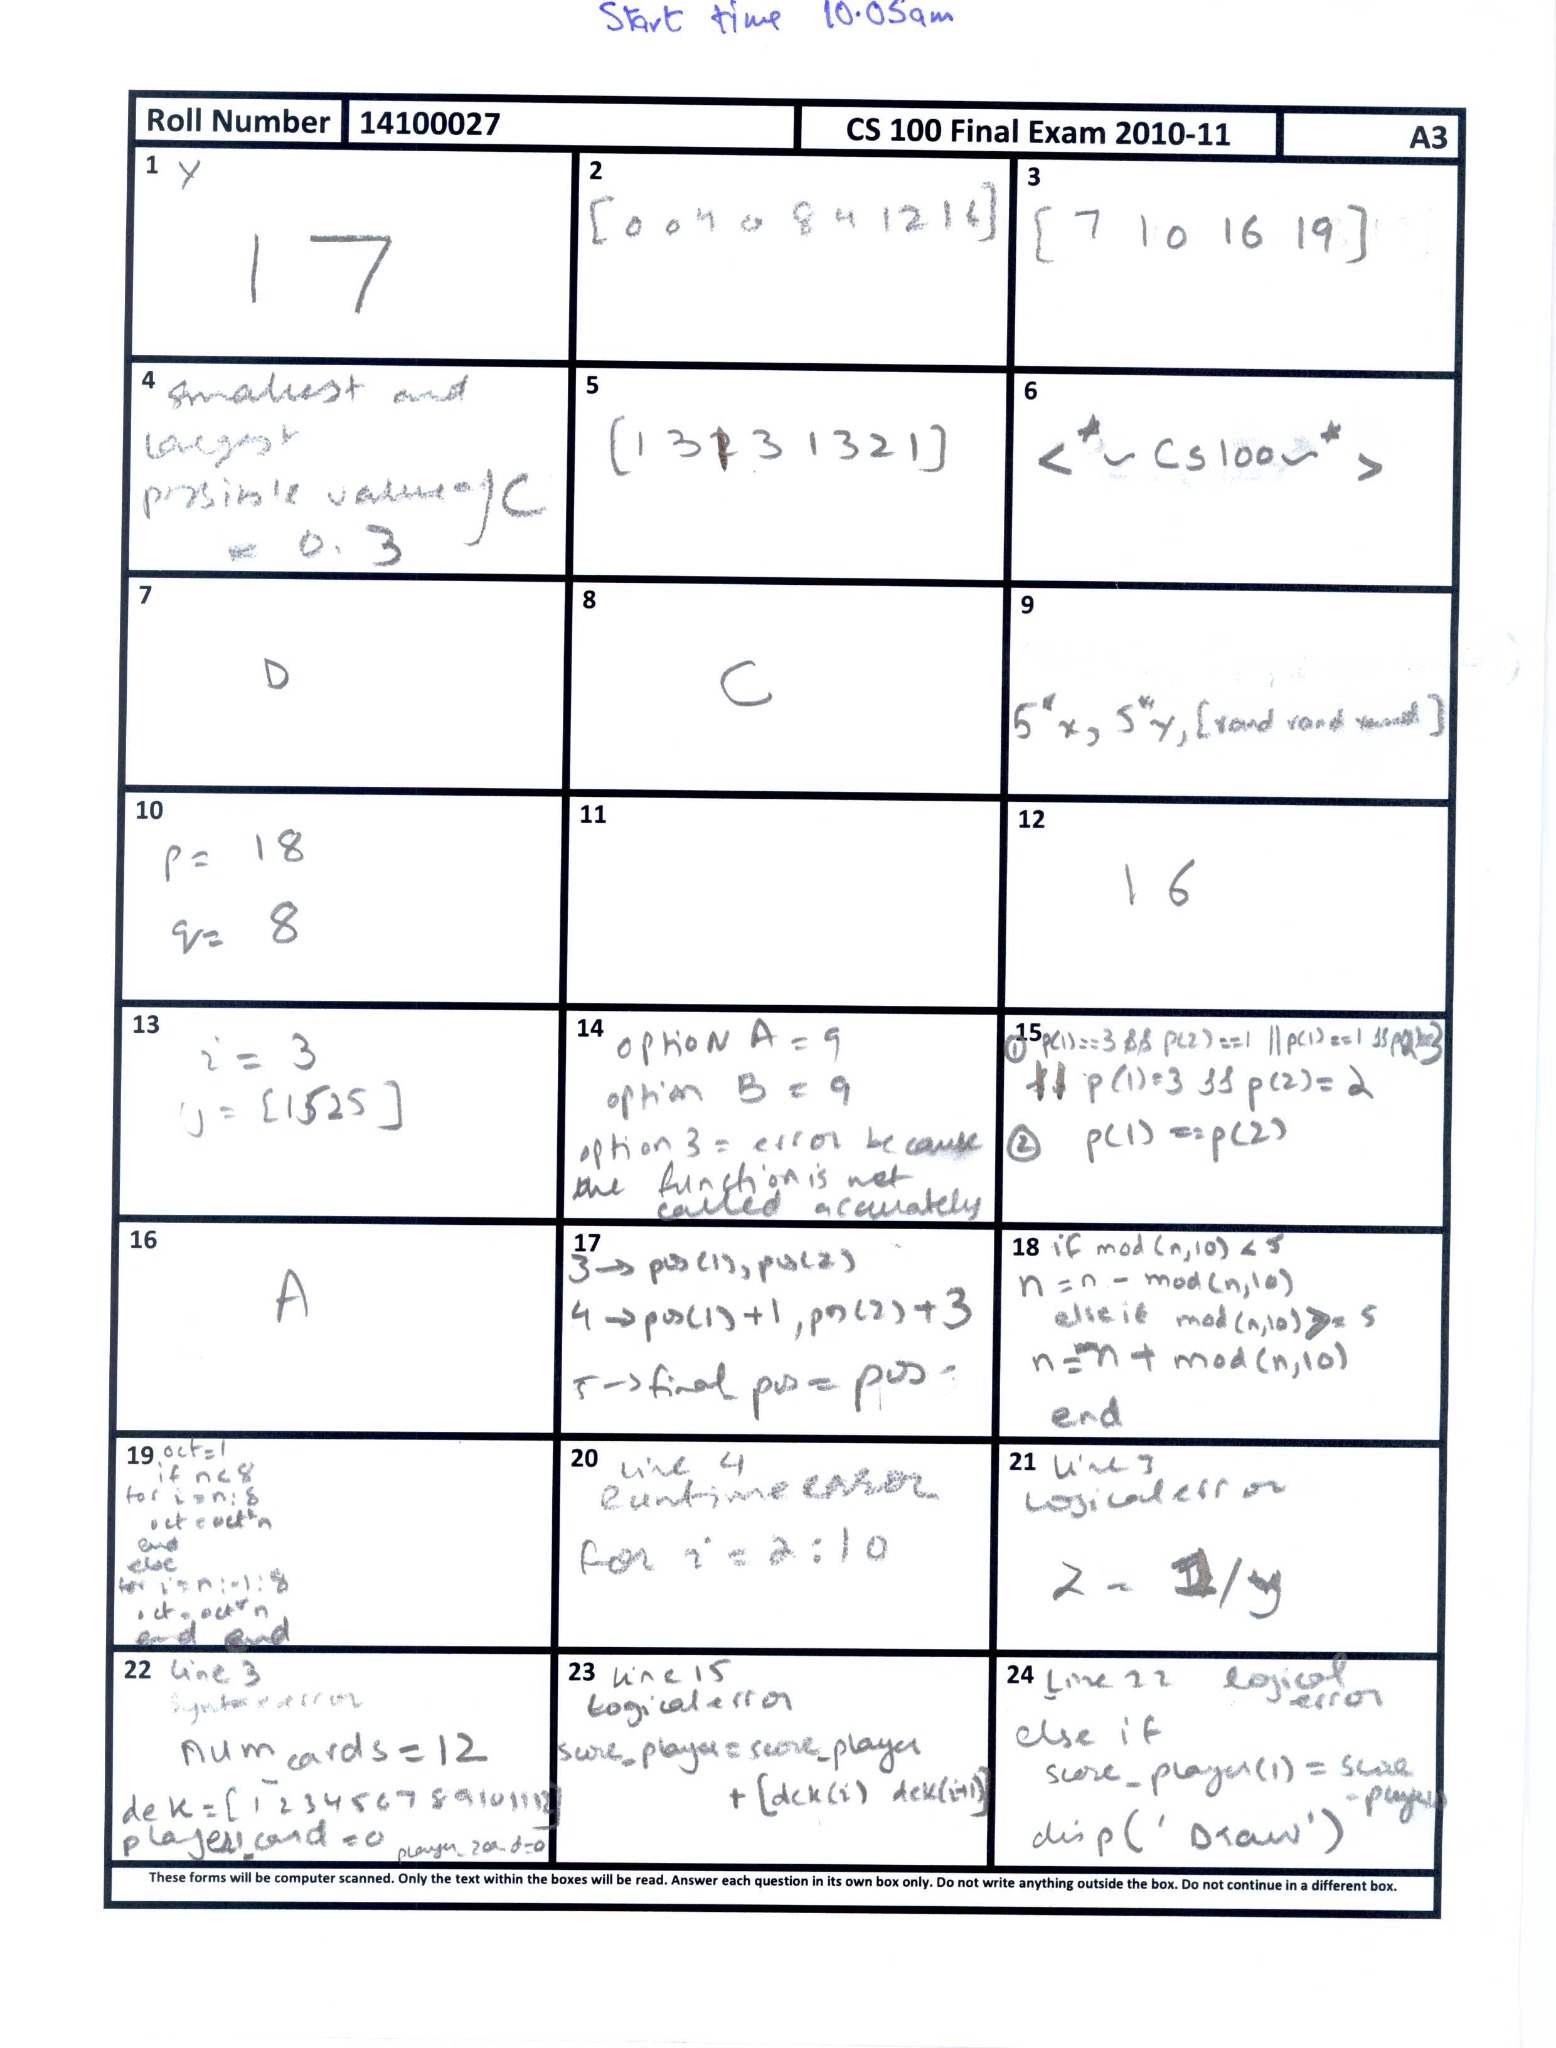 Start time 10.05am
Roll Number 14100027 CS 100 Final Exam 2010-11 A3
1 Y
17
2
[0 0 4 0 8 4 12 16]
3
[7 10 16 19]
4 smallest and
largest
possible value of C
= 0.3
5
[1 3 1 3 1 3 2 1]
6
<*~CS100~*>
7
D
8
C
9
5*x, 5*y, [rand rand rand]
10
p= 18
q= 8
11
12
16
13
i = 3
y = [1 5 25]
14 option A = 9
option B = 9
option 3 = error because
the function is not
called accurately
15
① p(1)==3 && p(2)==1 || p(1)==1 && p(2)==3
|| p(1)=3 && p(2)=2
② p(1) == p(2)
16
A
17
3 → pos(1), pos(2)
4 → pos(1)+1, pos(2)+3
5 → final pos = pos
18 if mod(n,10) < 5
n = n - mod(n,10)
elseif mod(n,10) >= 5
n = n + mod(n,10)
end
19 oct=1
if n<8
for i=n:8
oct=oct*n
end
else
for i=n:-1:8
oct=oct*n
end end
20 line 4
Runtime error
for i = 2:10
21 line 3
Logical error
1/y
22 line 3
Syntax error
num_cards = 12
dek = [1 2 3 4 5 6 7 8 9 10 11 12]
player1_card = 0
23 line 15
Logical error
score_player = score_player
+ [dck(i) dck(i+1)]
24 Line 22 logical
error
else if
score_player(1) = score
disp('Draw')
These forms will be computer scanned. Only the text within the boxes will be read. Answer each question in its own box only. Do not write anything outside the box. Do not continue in a different box.